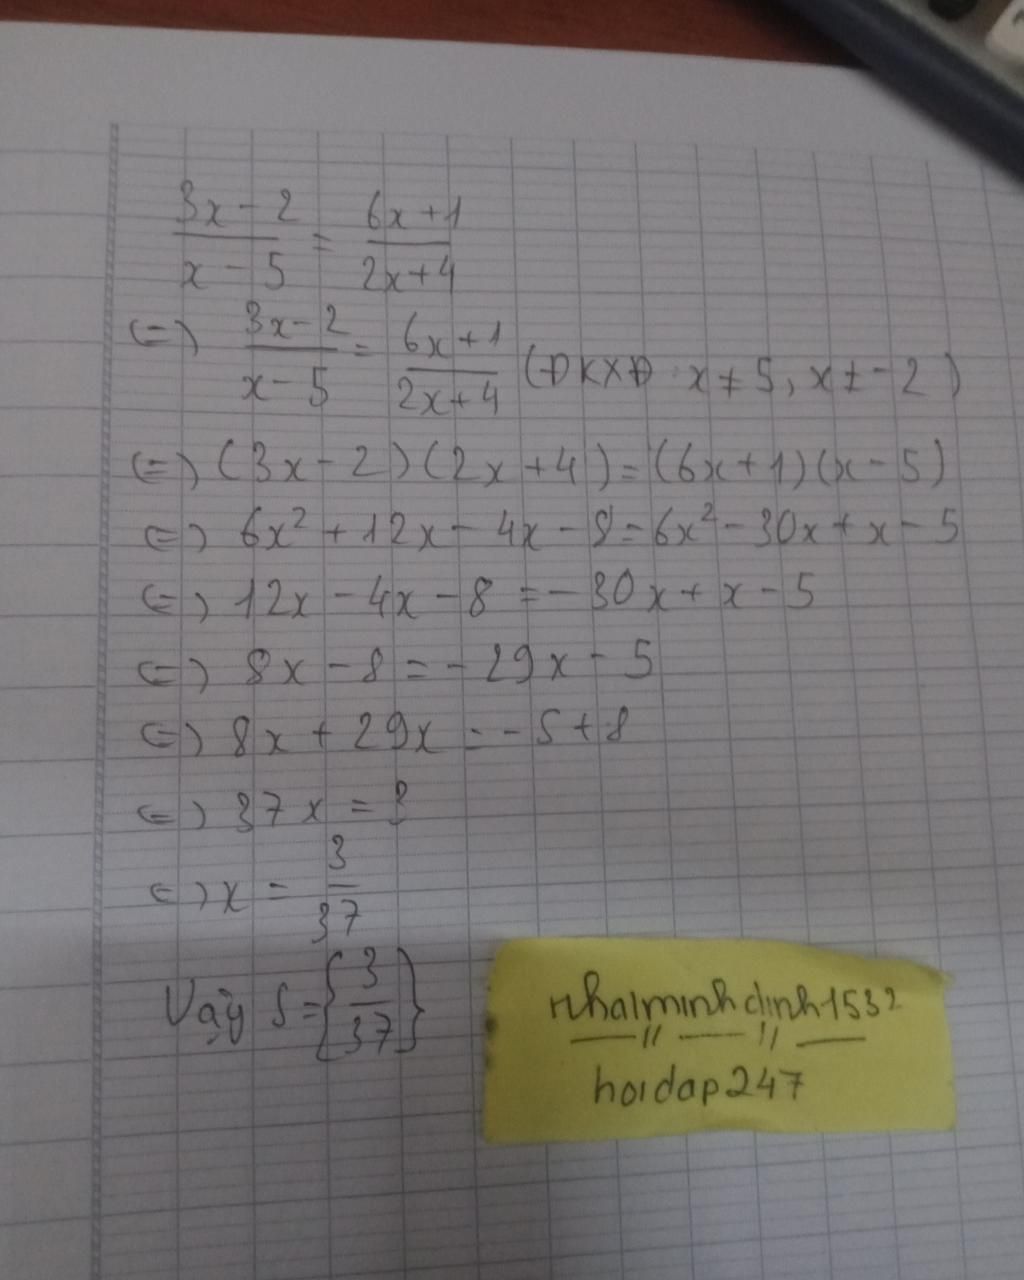 3x - 2 / x - 5 = 6x + 1 / 2x + 4
(=) 3x - 2 / x - 5 = 6x + 1 / 2x + 4 (ĐKXĐ x ≠ 5, x ≠ -2)
(=) (3x - 2)(2x + 4) = (6x + 1)(x - 5)
(=) 6x² + 12x - 4x - 8 = 6x² - 30x + x - 5
(=) 12x - 4x - 8 = -30x + x - 5
(=) 8x - 8 = -29x - 5
(=) 8x + 29x = -5 + 8
(=) 37x = 3
(=) x = 3 / 37
Vậy S = {3 / 37}
nhalminhdinh1532
hoidap247